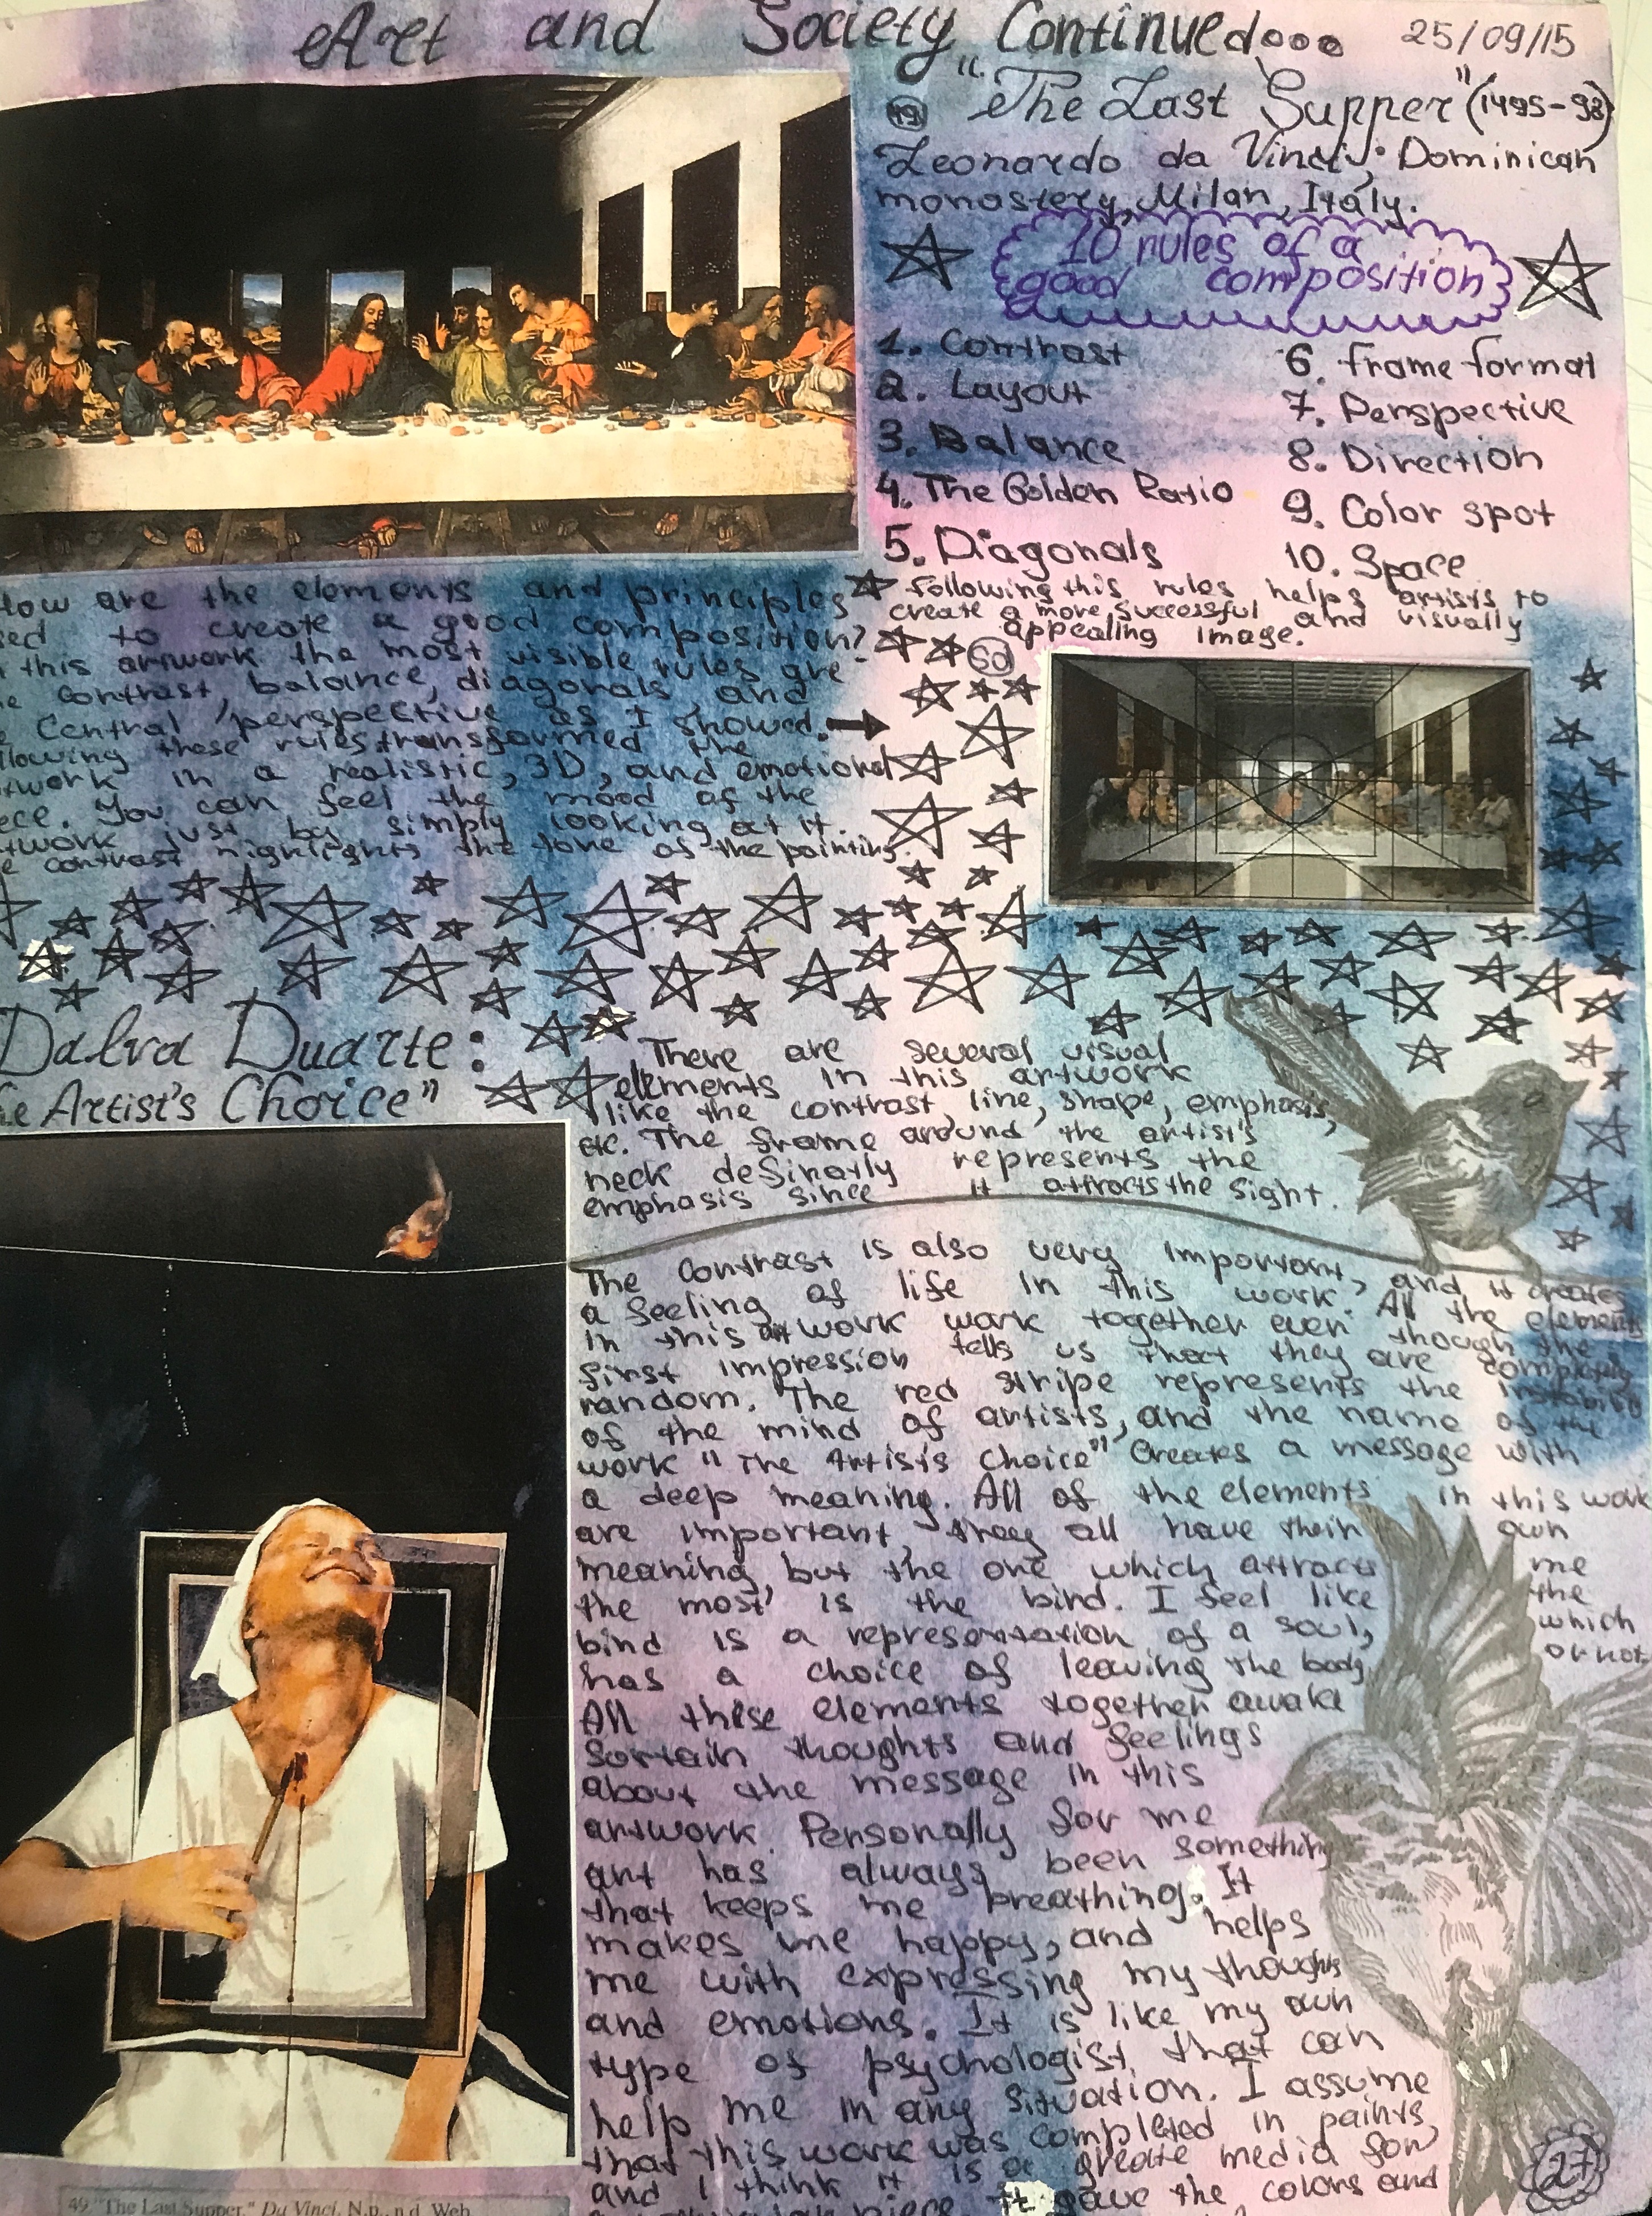 Art and Society Continued...
25/09/15
49 "The Last Supper" (1495-98)
Leonardo da Vinci; Dominican
monastery, Milan, Italy.
10 rules of a
good composition
1. Contrast
2. Layout
3. Balance
4. The Golden Ratio
5. Diagonals
6. frame format
7. Perspective
8. Direction
9. Color spot
10. Space
following this rules helps artists to
create a more successful and visually
appealing image.
50
How are the elements and principles
sed to create a good composition?
this artwork the most visible rules are
e contrast, balance, diagonals and
Central perspective as I showed.
llowing these rules transformed the
twork in a realistic, 3D, and emotional
ece. You can feel the mood of the
twork just by simply looking at it.
e contrast highlights the tone of the painting.
Dalva Duarte:
e Artist's Choice"
There are several visual
elements in this artwork
like the contrast, line, shape, emphasis,
etc. The frame around the artist's
neck definatly represents the
emphasis since it attracts the sight.
The contrast is also very important, and it creates
a feeling of life in this work. All the elements
in this artwork work together even though the
first impression tells us that they are completely
random. The red stripe represents the
of the mind of artists, and the name of the
work "The Artist's Choice" creates a message with
a deep meaning. All of the elements in this work
are important, they all have their own
meaning, but the one which attracts me
the most is the bird. I feel like the
bird is a representation of a soul, which
has a choice of leaving the body or not.
All these elements together awake
sertain thoughts and feelings
about the message in this
artwork. Personally for me
art has always been something
that keeps me breathing. It
makes me happy, and helps
me with expressing my thoughts
and emotions. It is like my own
type of psychologist, that can
help me in any situation. I assume
that this work was completed in paints,
and I think it is a greate media for
piece. It gave the colors and
27
49. "The Last Supper." Da Vinci. N.p., n.d. Web.